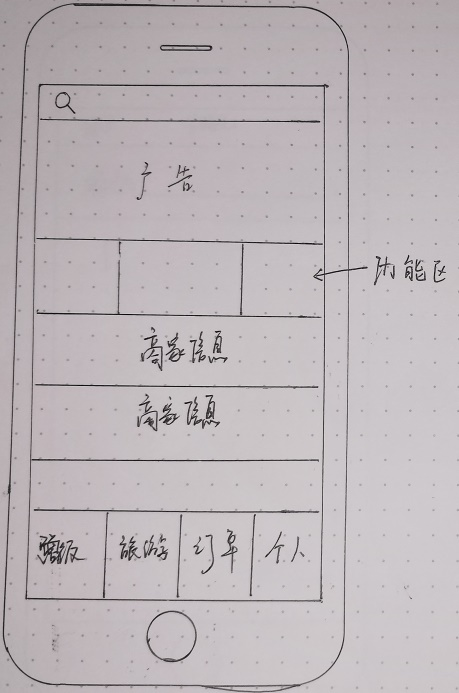 广告
功能区
商家信息
商家信息
旅游 订单 个人